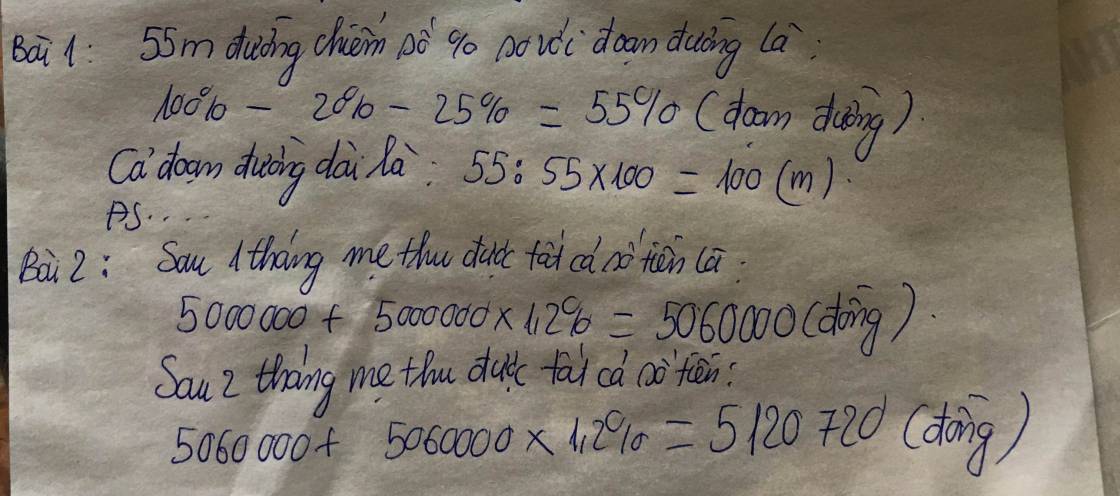 Bài 1: 55m đường chiếm số % so với đoạn đường là:
100% - 20% - 25% = 55% (đoạn đường).
Cả đoạn đường dài là: 55: 55 x 100 = 100 (m).
ĐS.....
Bài 2: Sau 1 tháng mẹ thu được tất cả số tiền là:
5000000 + 5000000 x 1,2% = 5060000 (đồng).
Sau 2 tháng mẹ thu được tất cả số tiền:
5060000 + 5060000 x 1,2% = 5120720 (đồng)